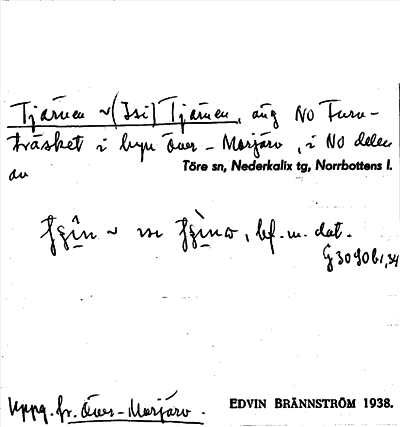 Tjärnen ~ (Isi) Tjärnen, äng NO Furu-
träsket i byn Över-Morjärv, i NO delen
av
Töre sn, Nederkalix tg, Norrbottens l.
bf. m. dat.
G 3090 b, 34
Uppg. fr. Över-Morjärv.
EDVIN BRÄNNSTRÖM 1938.